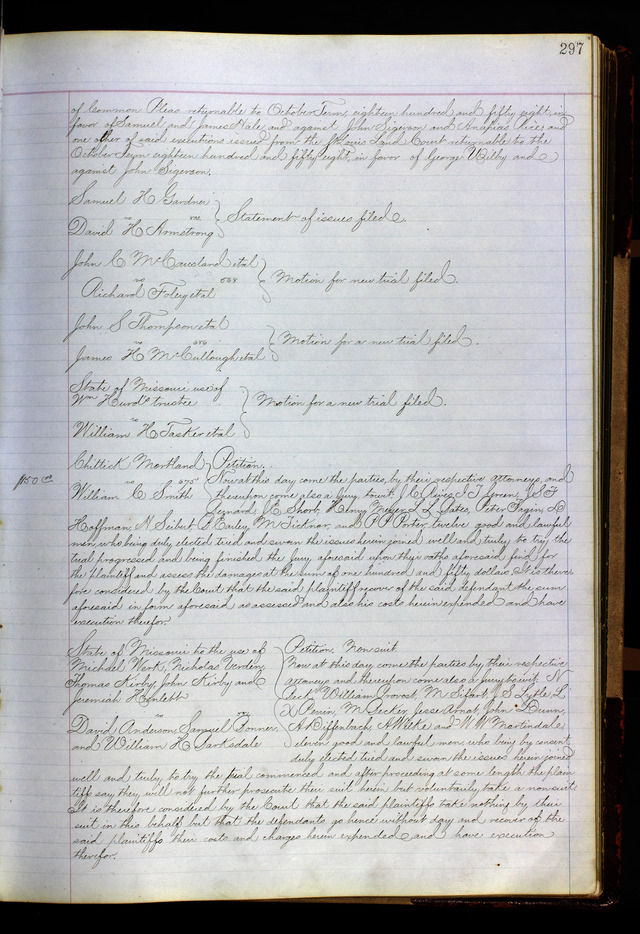 297
of Common Pleas returnable to October Term, eighteen hundred and fifty eight, in
favor of Samuel and James Hale, and against John Sigerson and Ananias Rice; and
one other of said executions issued from the St Louis Land Court returnable to the
October Term eighteen hundred and fifty eight, in favor of George Wilby and
against John Sigerson.
Samuel H Gardner
vs Statement of issues filed.
David H Armstrong
John C McCausland etal
vs Motion for new trial filed.
Richard Foley etal
John S Thompson etal
vs Motion for a new trial filed.
James H McCullough etal
State of Missouri use of
Wm Hurd's trustee
vs Motion for a new trial filed.
William H Tasker etal
Chittick Mortland Petition.
$150 00 vs Now at this day come the parties, by their respective attorneys, and
William C Smith thereupon come also a jury towit,
Lenard, J C Short, Henry Meyer, L L Yates, Peter Fagin,
Hoffman, N Seibert, P Earley, M Ticknor, and P P Porter, twelve good and lawful
men, who being duly elected tried and sworn the issues herein joined well and truly to try, the
trial progressed and being finished the jury aforesaid upon their oaths aforesaid find for
the plaintiff and assess the damages at the sum of one hundred and fifty dollars. It is there-
fore considered by the Court that the said plaintiff recover of the said defendant the sum
aforesaid in form aforesaid as assessed and also his costs herein expended and have
execution therefor.
State of Missouri to the use of Petition. Nonsuit
Michael Werk, Nicholas Verdein, Now at this day come the parties by their respective
Thomas Kirby, John Kirby and attorneys and thereupon come also a jury towit N
Jeremiah Henlett William Provost, M Sifart, J S Lytle, L
vs X Perrin, M Decker, Jesse Arnot, John Brown,
David Anderson, Samuel Bonner, A Diffenbach, A Weke and W W Martindale
and William H Barksdale eleven good and lawful men, who being by consent
duly elected tried and sworn the issues herein joined
well and truly to try, the trial commenced and after proceeding at some length the plain
tiff say they will not further prosecute their suit herein but voluntarily take a nonsuit.
It is therefore considered by the Court that the said plaintiffs take nothing by their
suit in this behalf but that the defendants go hence without day and recover of the
said plaintiffs their costs and charges herein expended and have execution
therefor.